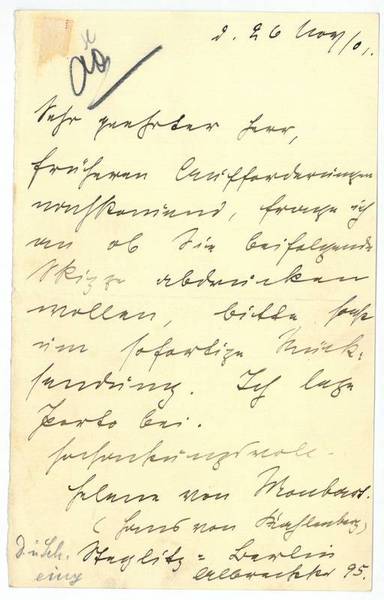 d. 26 Nov/01.
Sehr geehrter Herr,
früheren Aufforderungen
nachkommend, frage ich
an ob Sie beifolgende
Skizze abdrucken
wollen, bitte sonst
um sofortige Rück-
sendung. Ich lege
Porto bei.
Hochachtungsvoll.
Helene von Monbart.
(Hans von Kahlenberg)
Steglitz = Berlin
Albrechtstr 95.